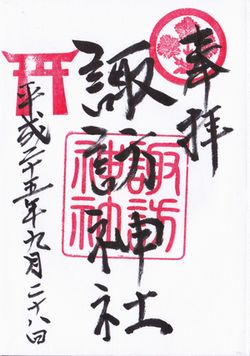 奉拝
諏訪神社
諏訪
神社
平成二十五年九月二十八日